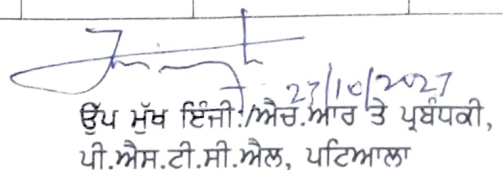 27/10/2027
ਉੱਪ ਮੁੱਖ ਇੰਜੀ:/ਐਚ.ਆਰ ਤੇ ਪ੍ਰਬੰਧਕੀ,
ਪੀ.ਐਸ.ਟੀ.ਸੀ.ਐਲ, ਪਟਿਆਲਾ